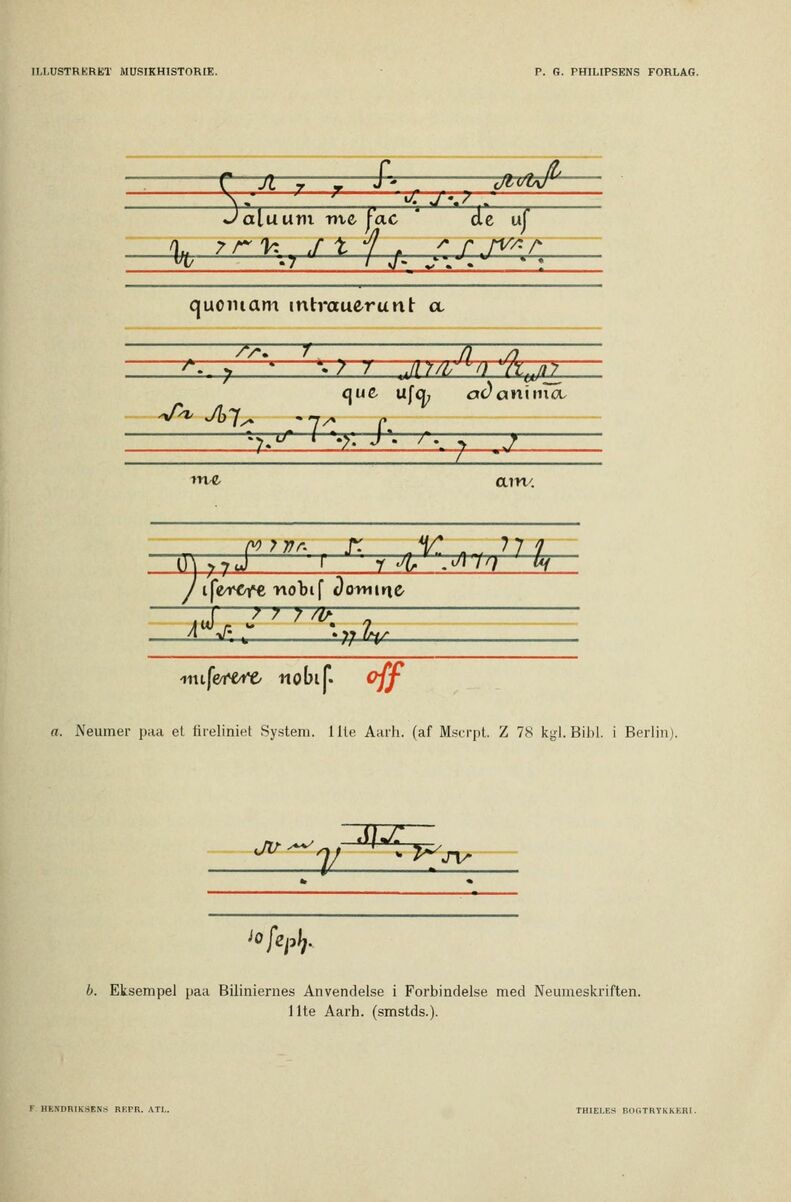 ILLUSTRERET MUSIKHISTORIE.
P. G. PHILIPSENS FORLAG.
Saluum me fac de uſ
quoniam intrauerunt a
que uſq; ad anima
me am.
Miſerere nobiſ domine
miſerere nobiſ. off
a. Neumer paa et fireliniet System. 11te Aarh. (af Mscrpt. Z 78 kgl. Bibl. i Berlin).
Ioſeph.
b. Eksempel paa Biliniernes Anvendelse i Forbindelse med Neumeskriften.
11te Aarh. (smstds.).
F. HENDRIKSENS REPR. ATL.
THIELES BOGTRYKKERI.